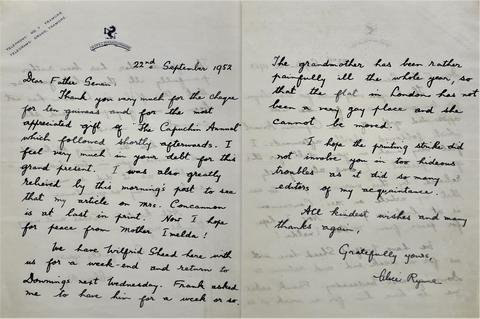 22nd September 1952
Dear Father Senan,
Thank you very much for the cheque
for ten guineas and for the most
appreciated gift of The Capuchin Annual
which followed shortly afterwards. I
feel very much in your debt for this
grand present. I was also greatly
relieved by this morning's post to see
that my article on Mrs. Concannon
is at last in print. Now I hope
for peace from Mother Imelda!
We have Wilfrid Sheed here with
us for a week-end and return to
Downings next Wednesday. Frank asked
me to have him for a week or so.
The grandmother has been rather
painfully ill the whole year, so
that the flat in London has not
been a very gay place and she
cannot be moved.
I hope the printing strike did
not involve you in too hideous
troubles as it did so many
editors of my acquaintance.
All kindest wishes and many
thanks again,
Gratefully yours,
Alice